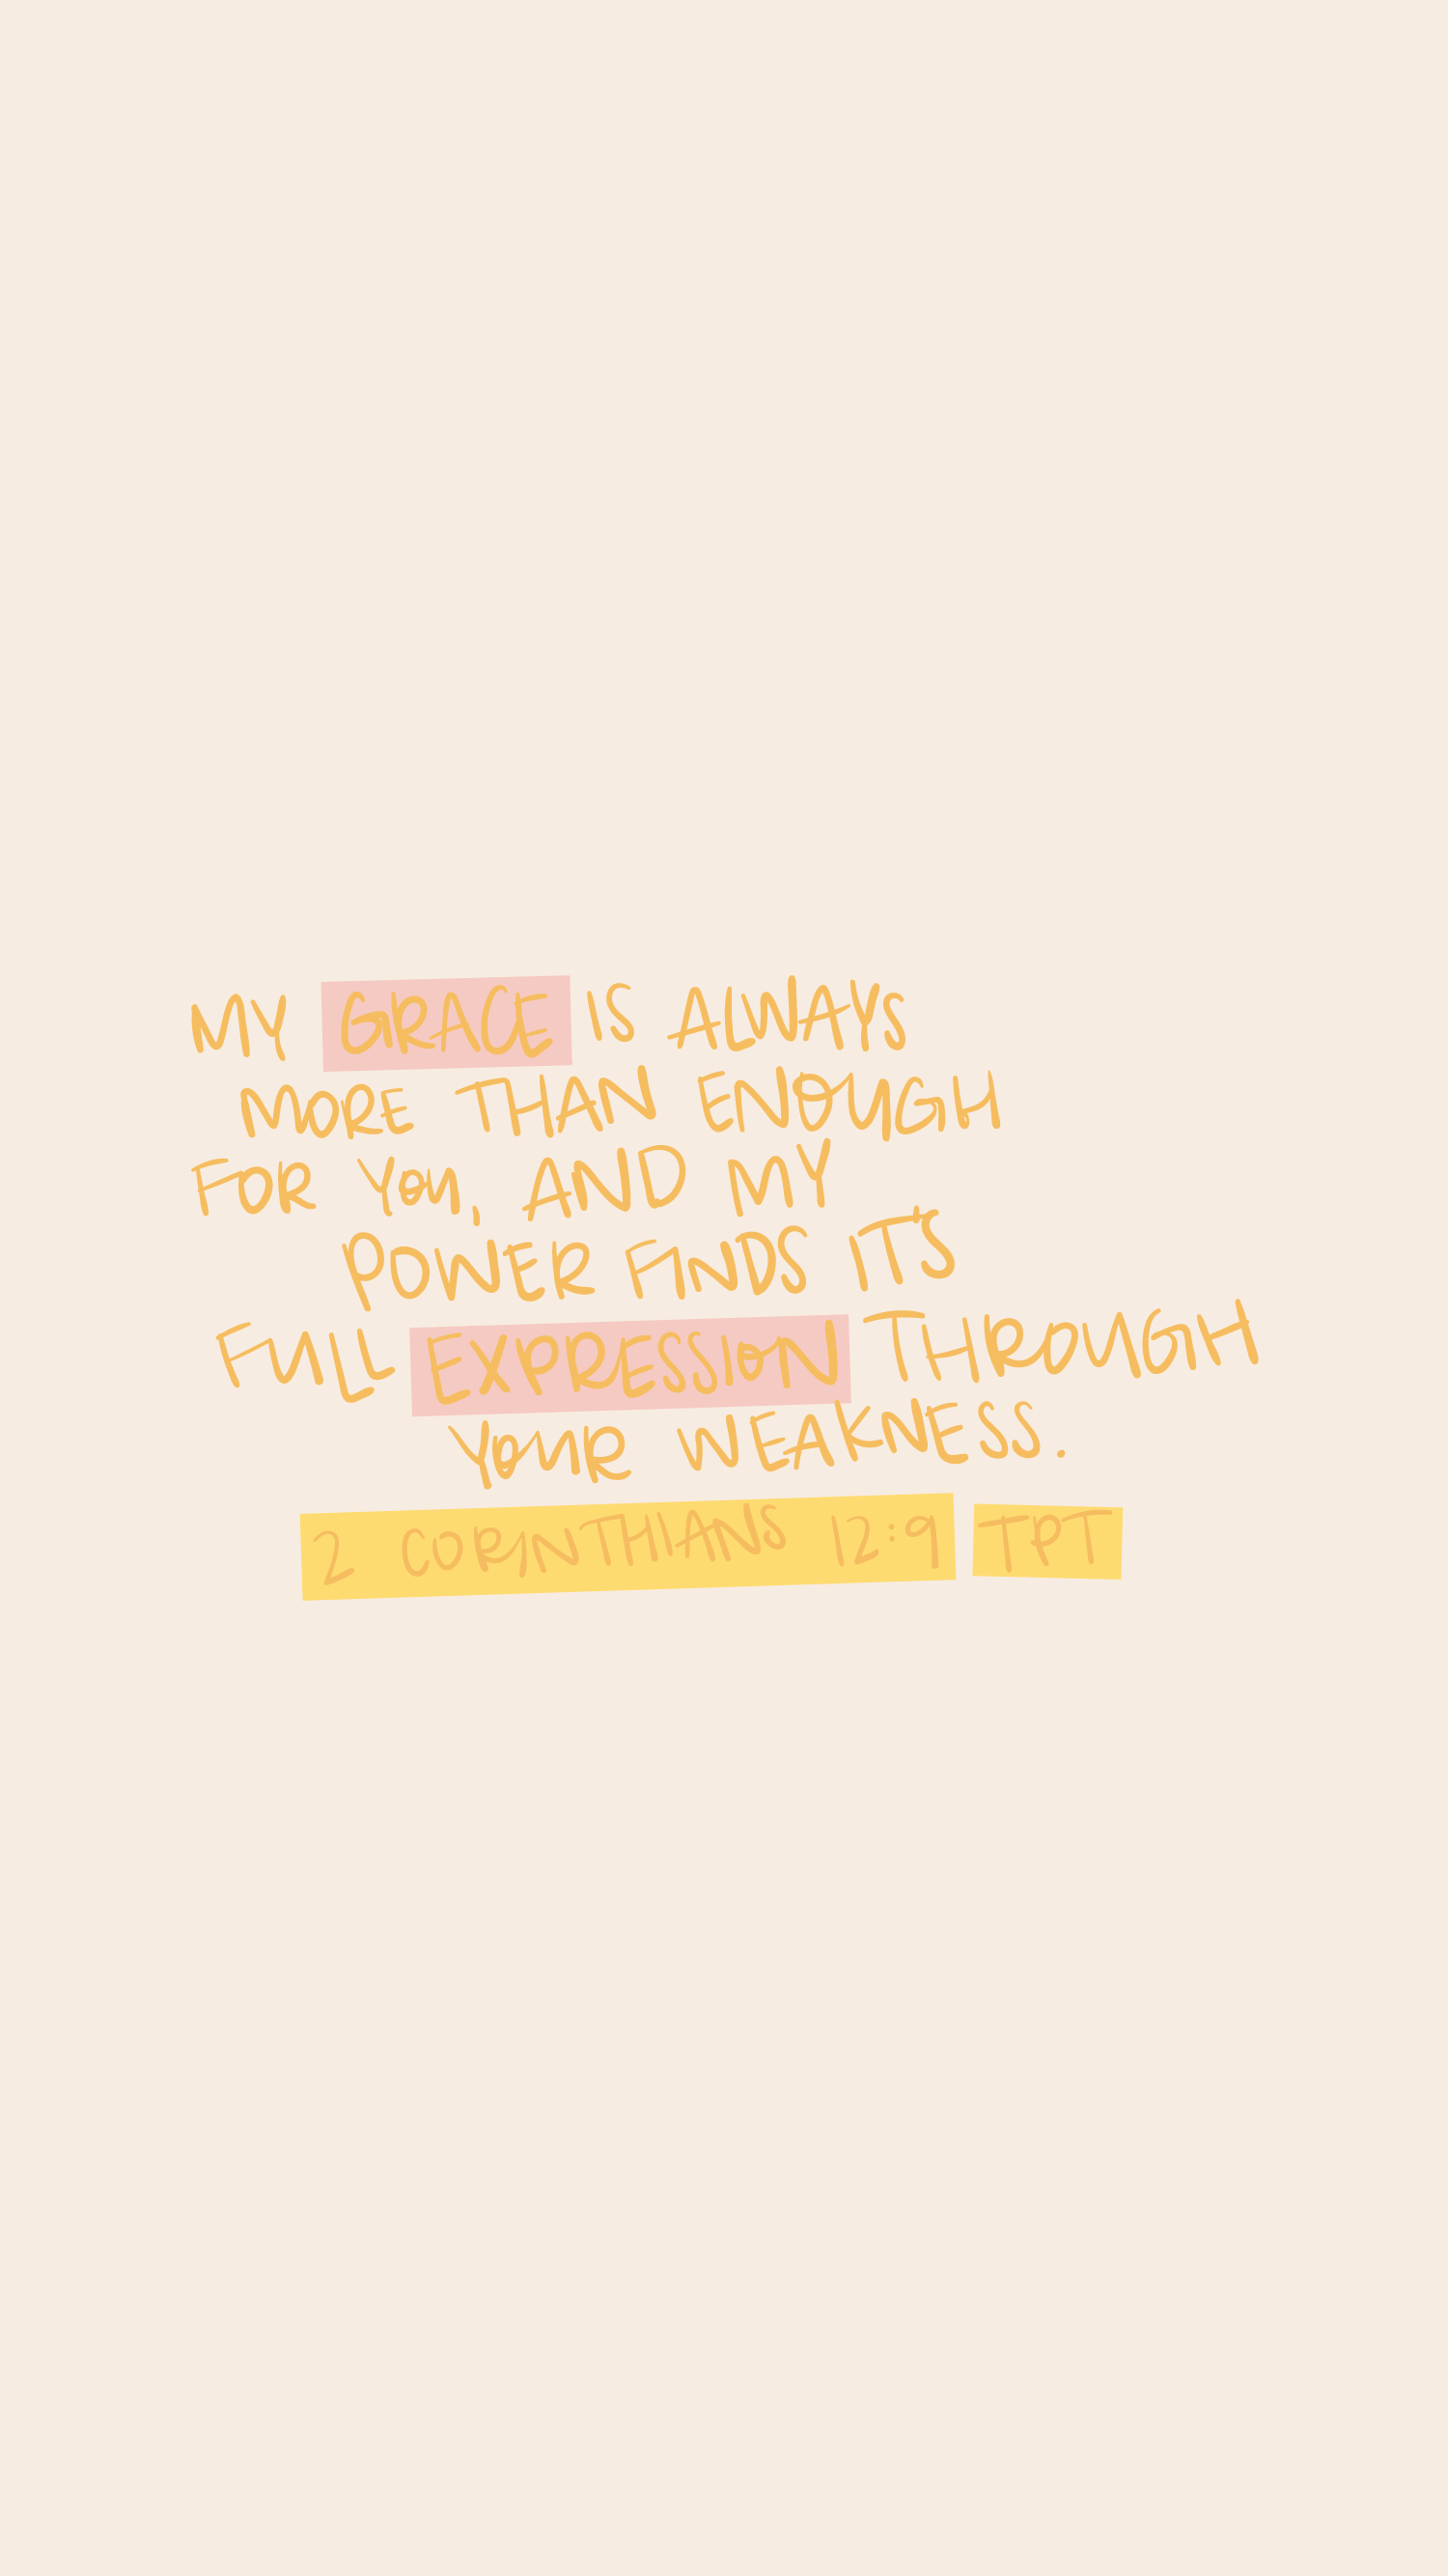 MY GRACE IS ALWAYS
MORE THAN ENOUGH
FOR YOU, AND MY
POWER FINDS IT'S
FULL EXPRESSION THROUGH
YOUR WEAKNESS.
2 CORINTHIANS 12:9 TPT